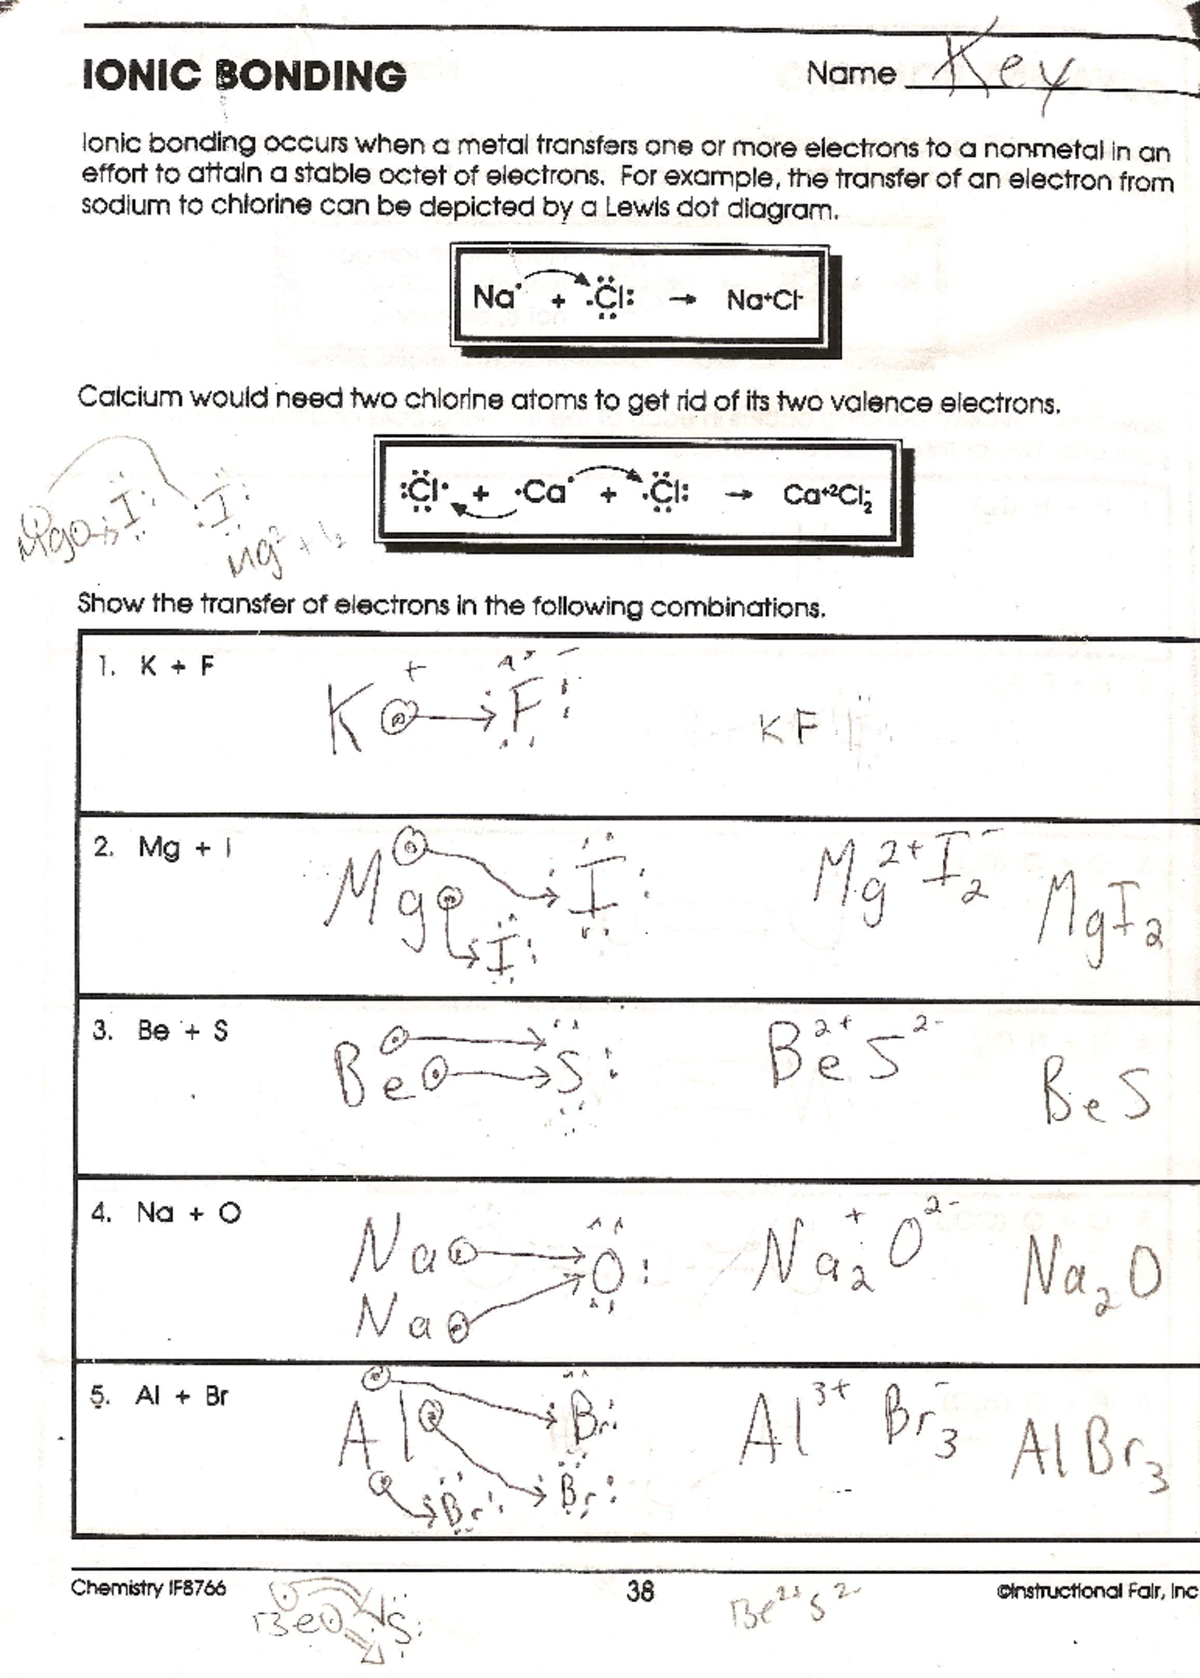 IONIC BONDING
Name Key
Ionic bonding occurs when a metal transfers one or more electrons to a nonmetal in an
effort to attain a stable octet of electrons. For example, the transfer of an electron from
sodium to chlorine can be depicted by a Lewis dot diagram.
Na· + ·Cl: → Na⁺Cl⁻
Calcium would need two chlorine atoms to get rid of its two valence electrons.
:Cl· + ·Ca· + ·Cl: → Ca⁺²Cl₂⁻
Mg I I
Mg²⁺I₂
Show the transfer of electrons in the following combinations.
1. K + F
K⁺ → F⁻
KF
2. Mg + I
Mg → I
→ I
Mg²⁺I₂⁻
MgI₂
3. Be + S
Be → S
Be²⁺S²⁻
BeS
4. Na + O
Na → O
Na
Na₂⁺O²⁻
Na₂O
5. Al + Br
Al → Br
→ Br → Br
Al³⁺Br₃⁻
AlBr₃
Chemistry IF8766
38
©Instructional Fair, Inc
Be S
Be²⁺S²⁻